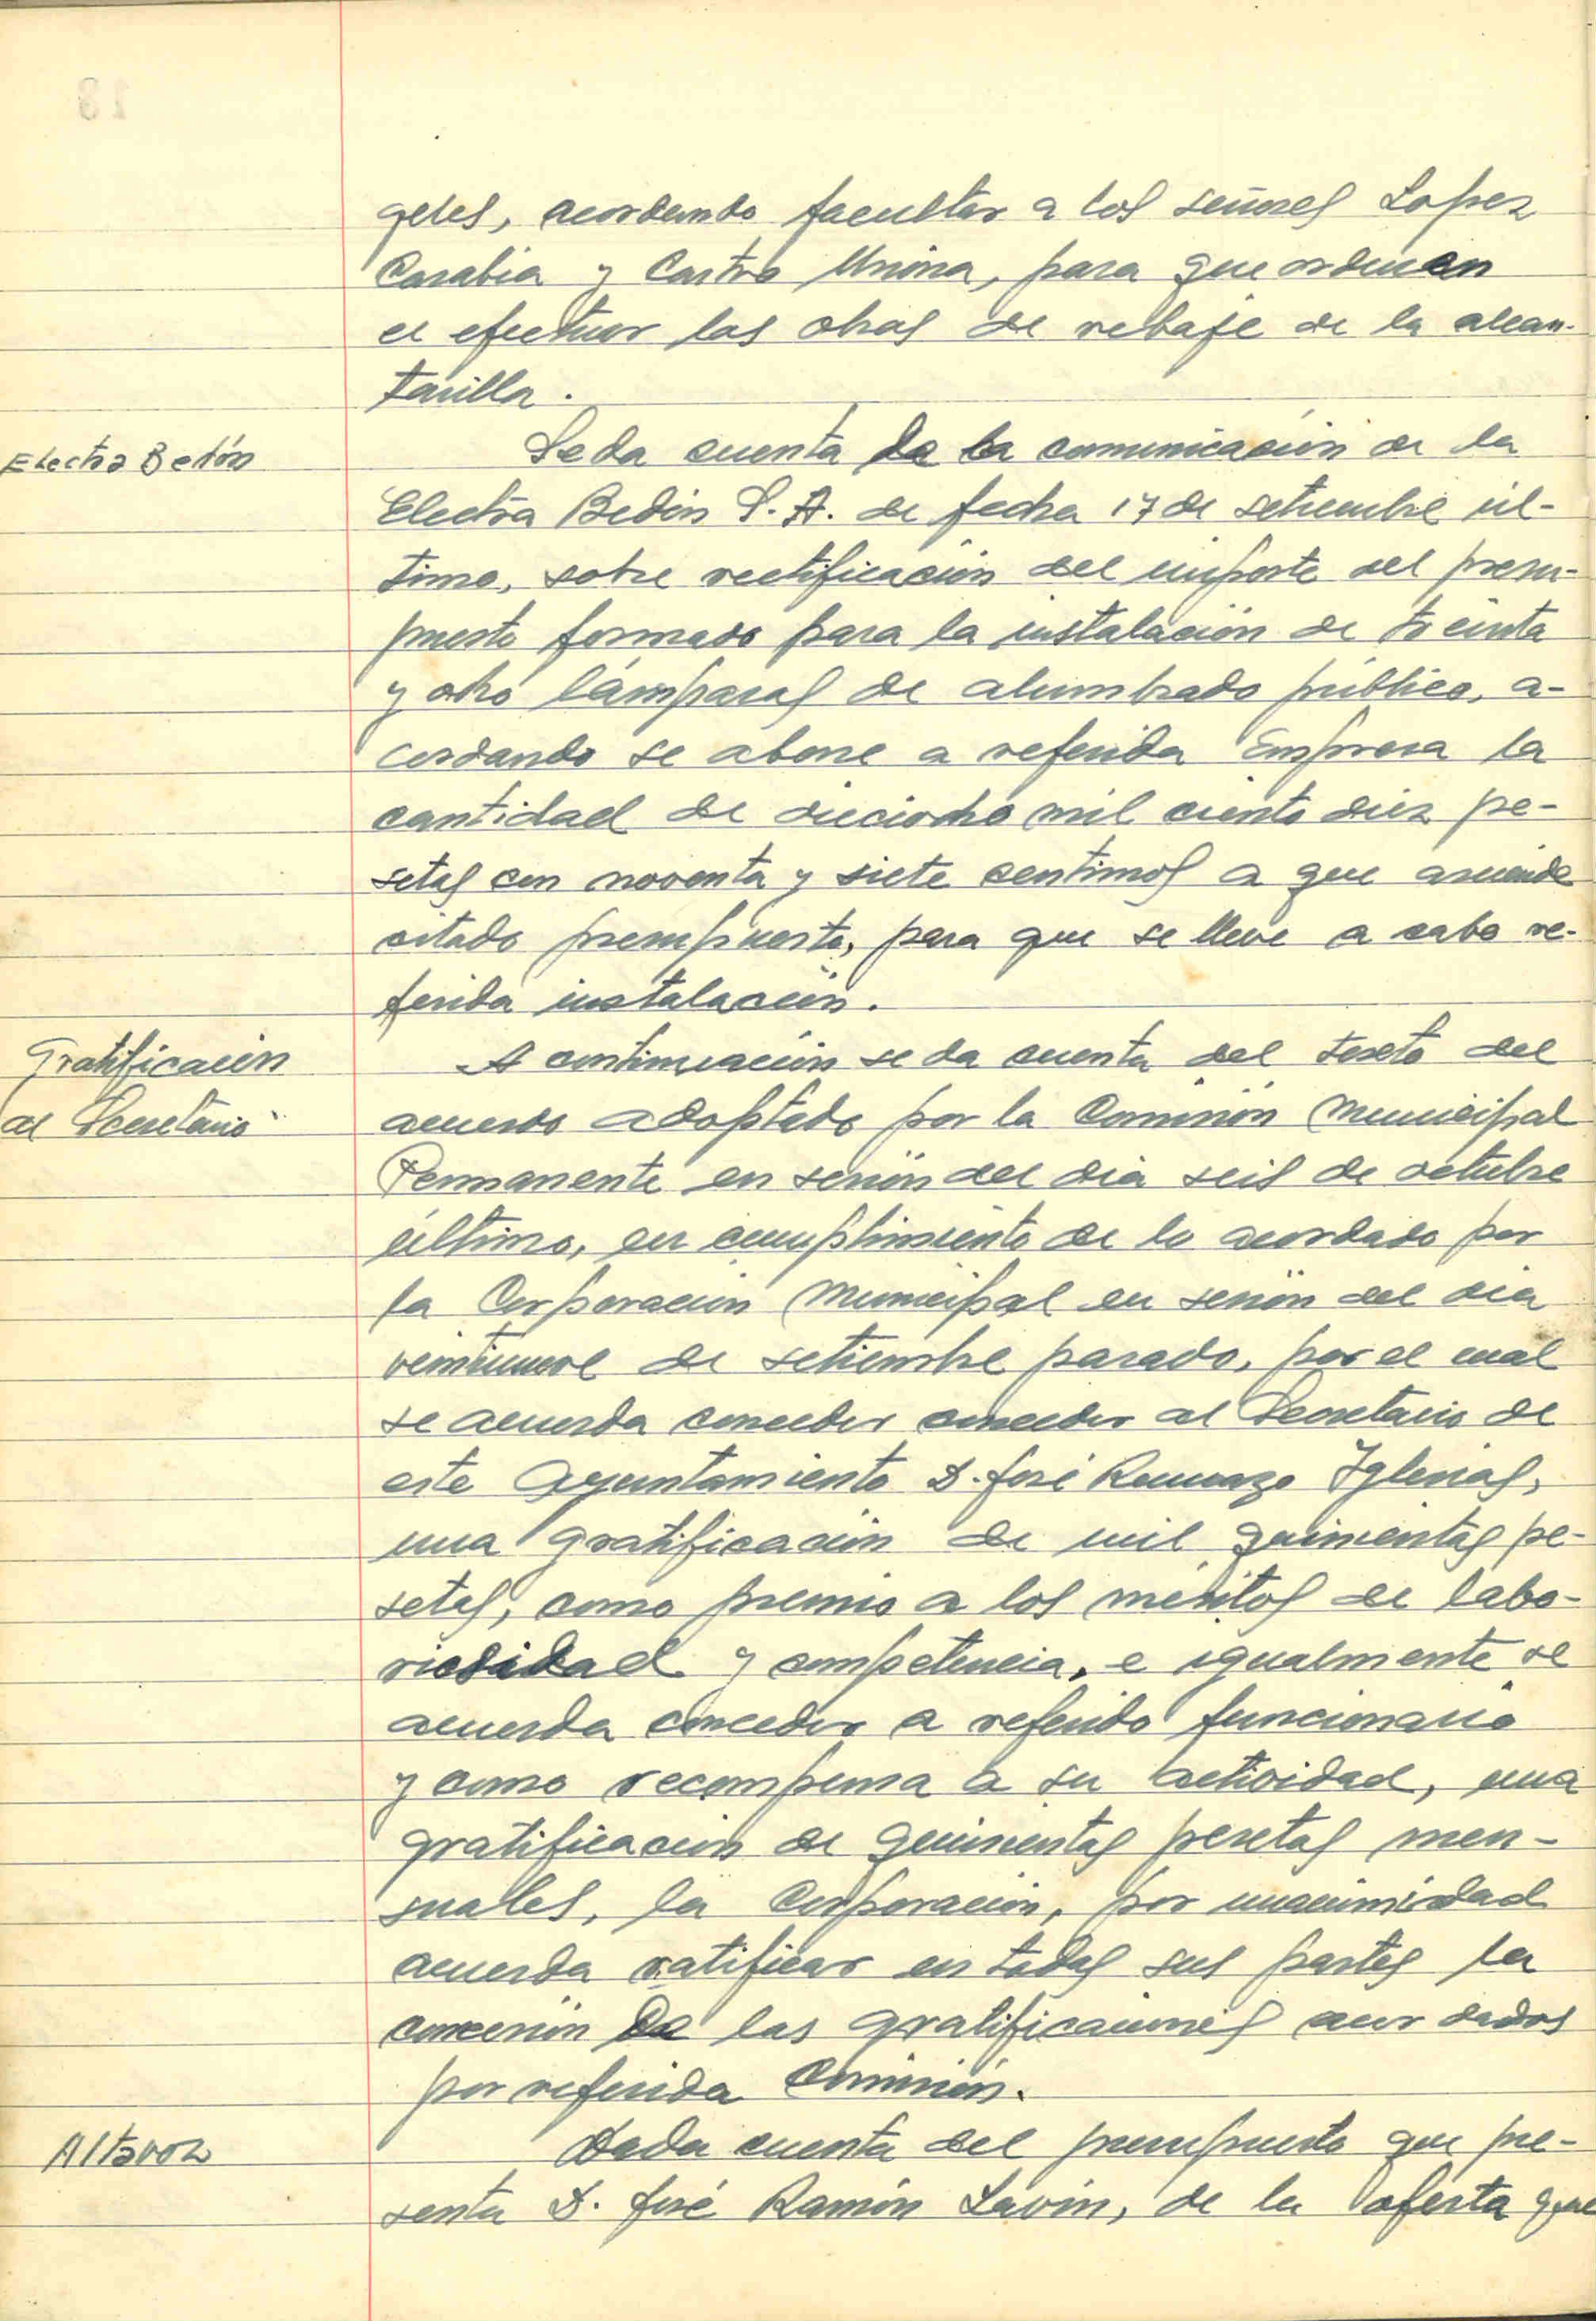 geles, acordando facultar a los señores Lopez
Carabia y Castro Unina, para que ordenen
el efectuar las obras de rebaje de la alcan-
tarilla.
Electra Bedón
Se da cuenta de la comunicación de la
Electra Bedón S. A. de fecha 17 de setiembre úl-
timo, sobre rectificación del importe del presu-
puesto formado para la instalación de treinta
y ocho lámparas de alumbrado público, a-
cordando se abone a referida Empresa la
cantidad de dieciocho mil ciento diez pe-
setas con noventa y siete centimos a que asciende
citado presupuesto, para que se lleve a cabo re-
ferida instalación.
Gratificación
al Secretario
A continuación se da cuenta del texto del
acuerdo adoptado por la Comisión Municipal
Permanente en sesión del día seis de octubre
último, en cumplimiento de lo acordado por
la Corporación Municipal en sesión del día
veintinueve de setiembre pasado, por el cual
se acuerda conceder conceder al Secretario de
este Ayuntamiento D. José Iglesias,
una gratificación de mil quinientas pe-
setas, como premio a los méritos de labo-
riosidad y competencia, e igualmente se
acuerda conceder a referido funcionario
y como recompensa a su actividad, una
gratificación de quinientas pesetas men-
suales, la Corporación, por unanimidad
acuerda ratificar en todas sus partes la
concesión de las gratificaciones acordadas
por referida Comisión.
Altavoz
Dada cuenta del presupuesto que pre-
senta D. José Ramón Lavín, de la oferta que